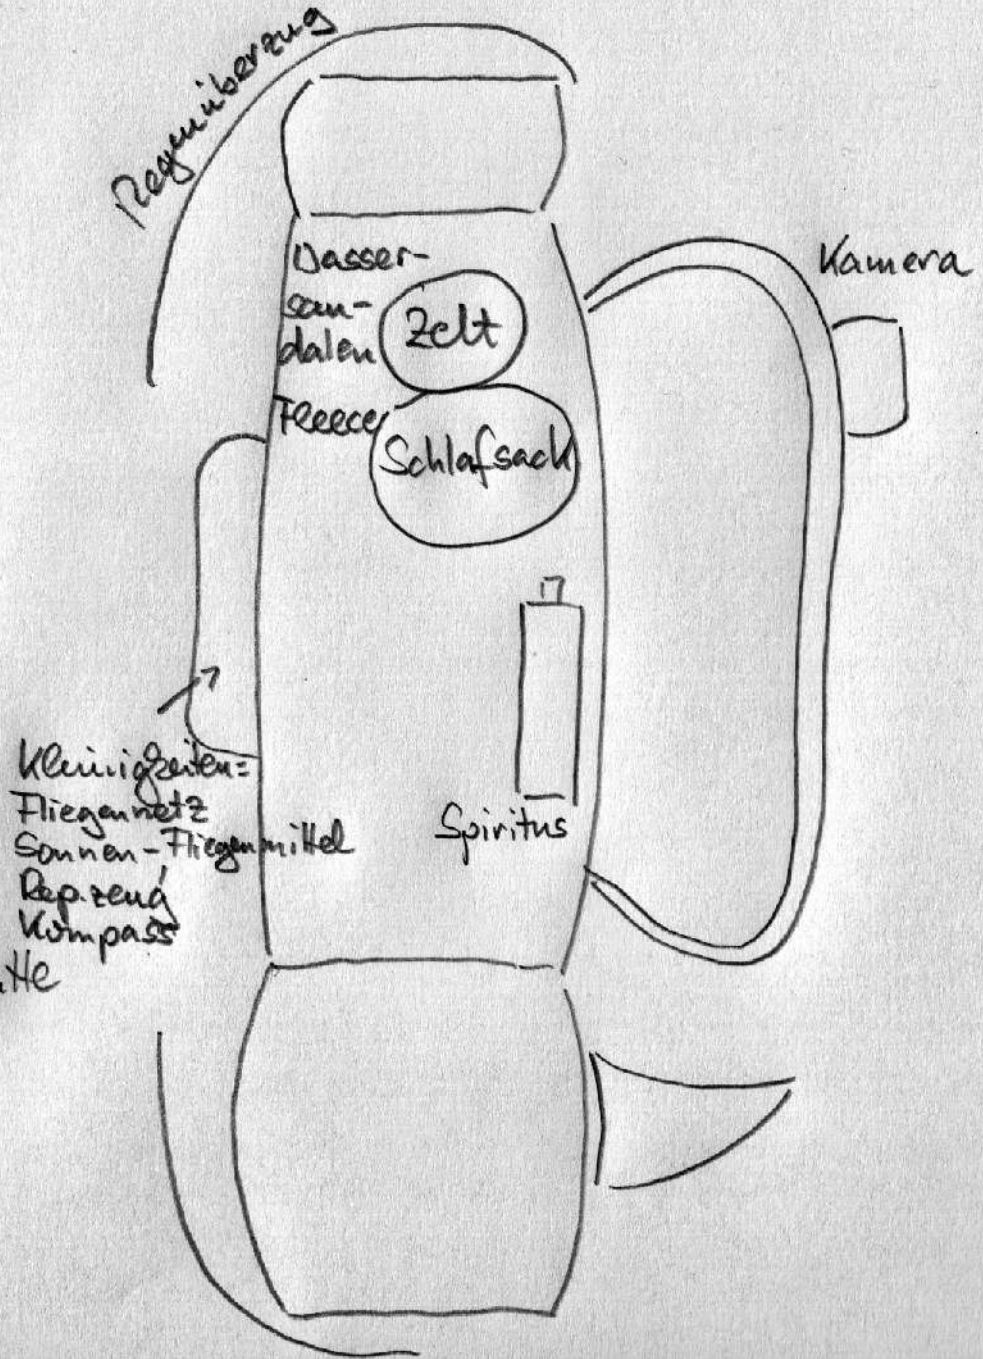 Regenüberzug
Kamera
Wasser-
san-
dalen
Zelt
Fleece
Schlafsack
Spiritus
Kleinigkeiten:
Fliegennetz
Sonnen-Fliegenmittel
Rep.zeug
Kompass